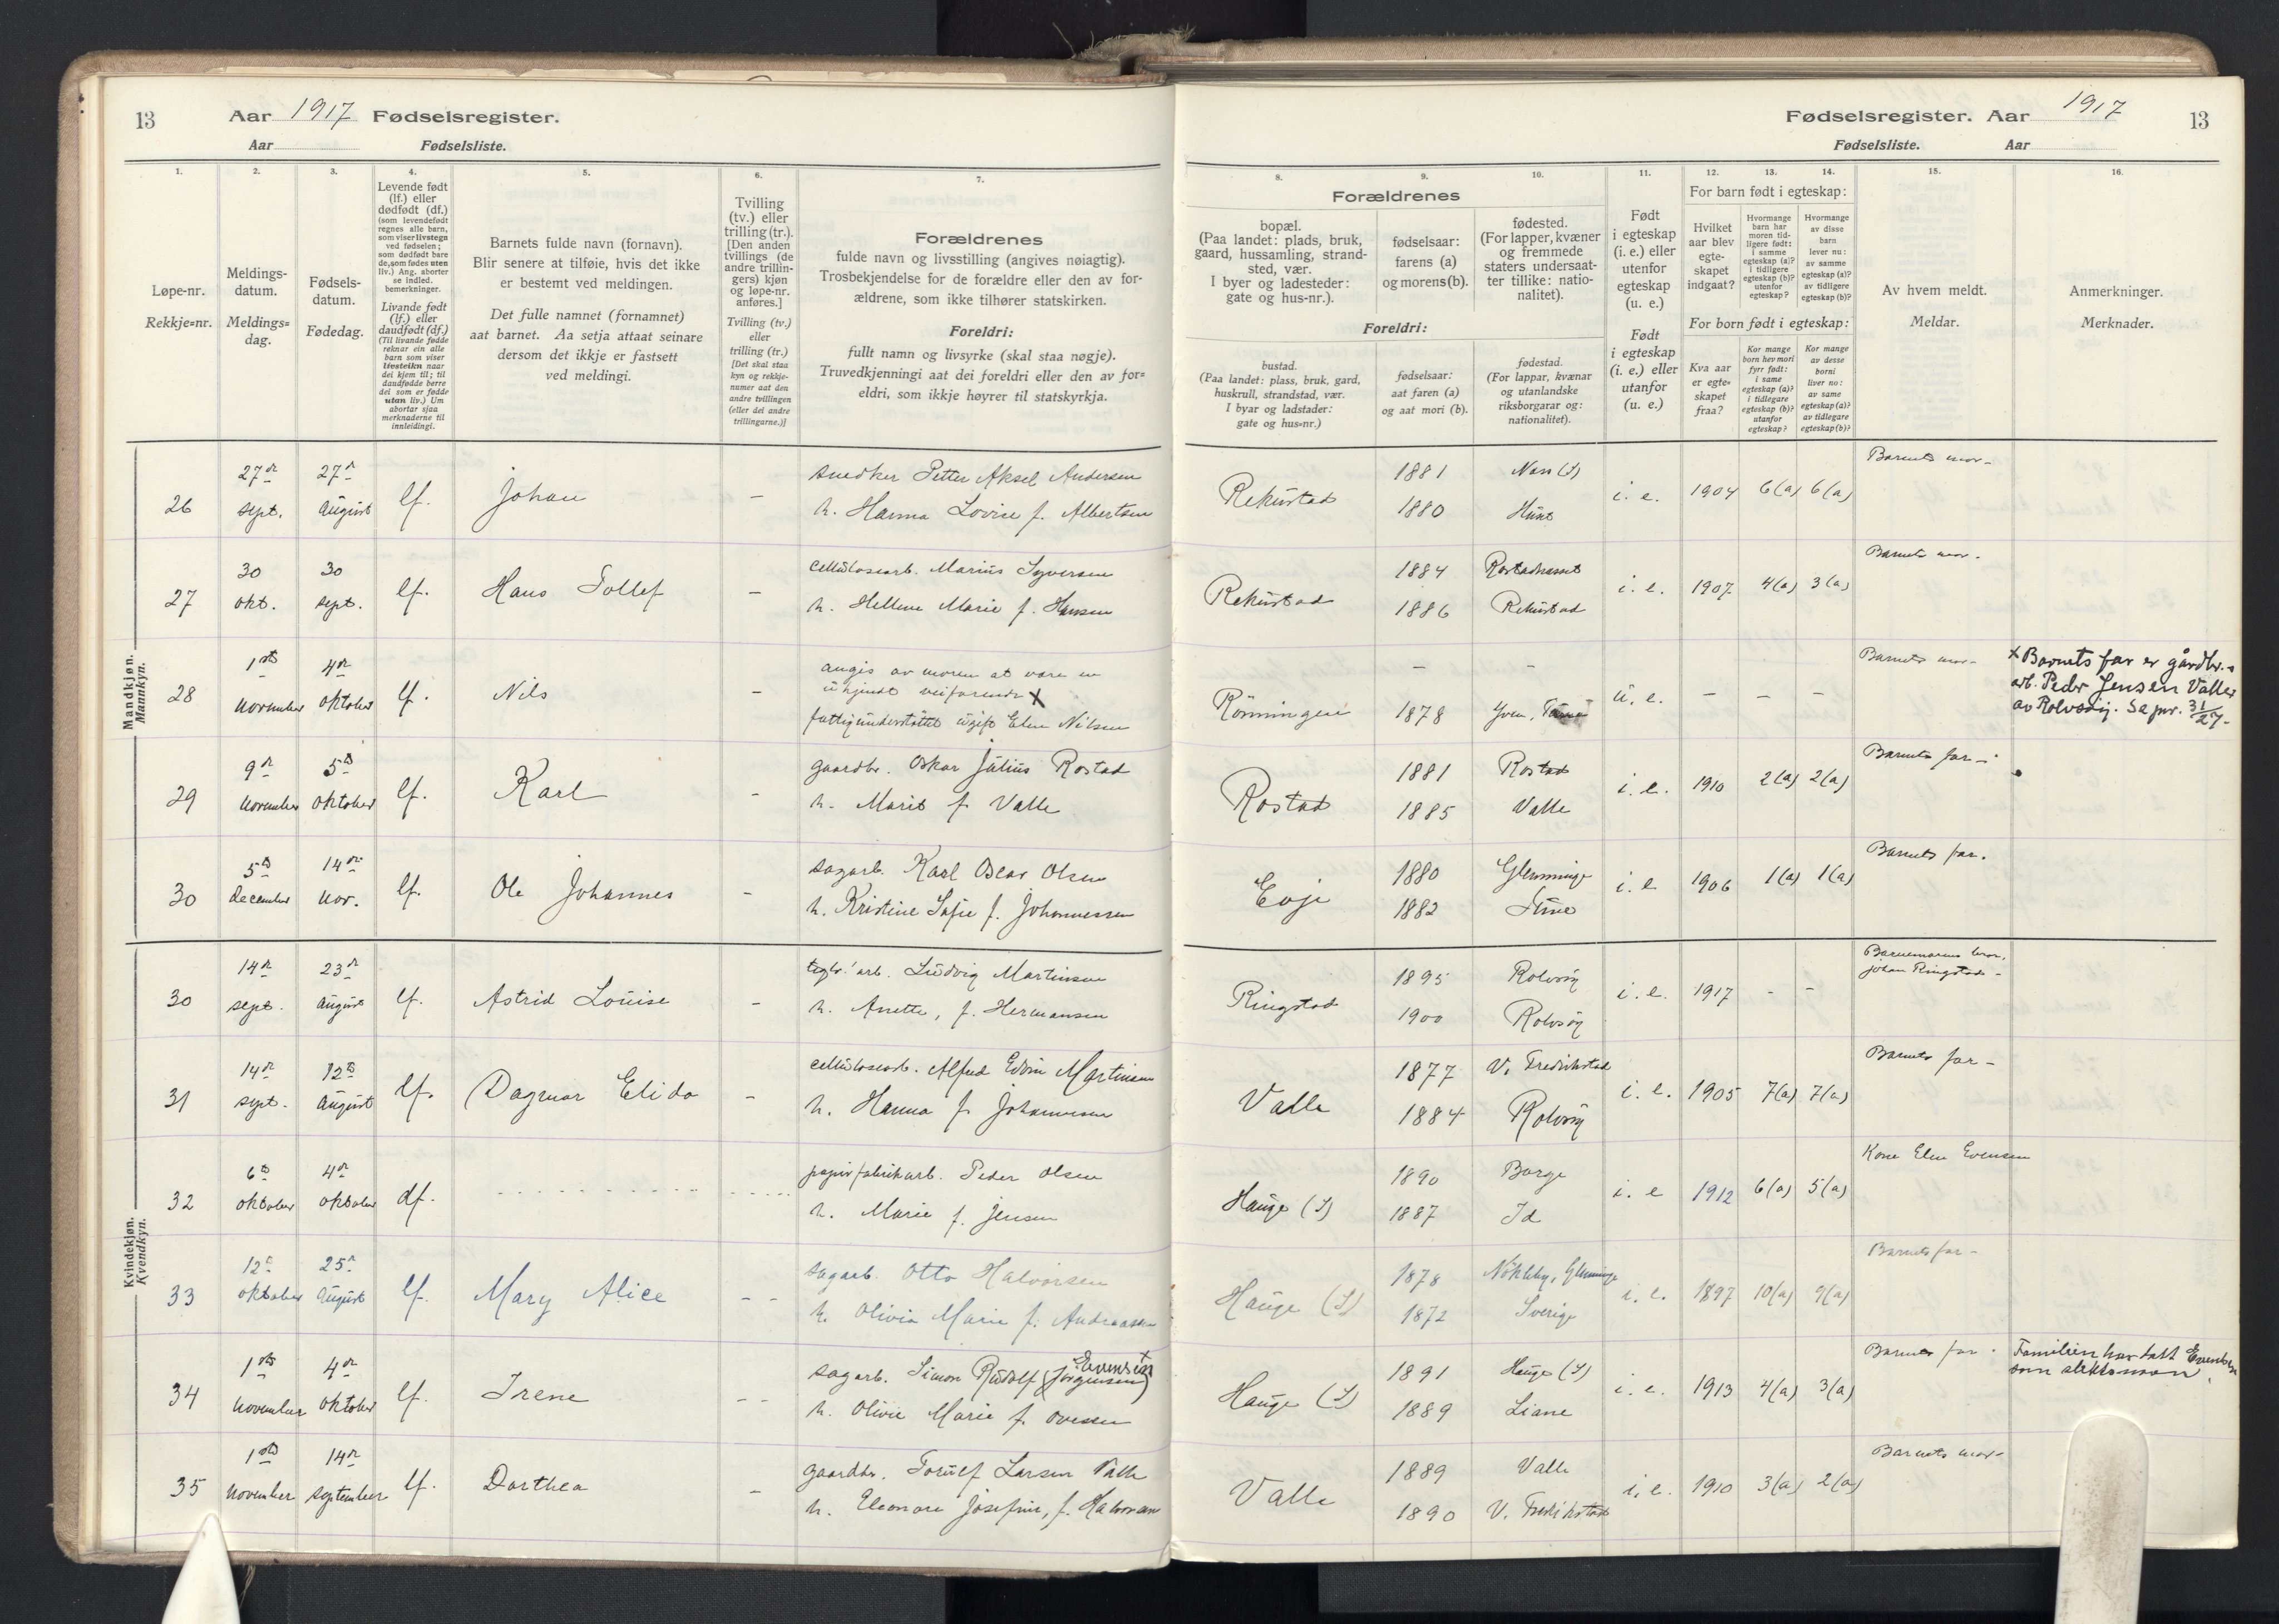 13
Aar 1917 Fødselsregister.
Aar Fødselsliste.
1.
2.
3.
4.
5.
6.
7.
Løpe-nr.
Rekkje=nr.
Meldings-
datum.
Meldings=
dag.
Fødsels-
datum.
Fødedag.
Levende født
(lf.) eller
dødfødt (df.)
(som levendefødt
regnes alle barn,
som viser livstegn
ved fødselen;
som dødfødt bare
de, som fødes uten
liv.) Ang. aborter
se indled.
bemerkninger.
Livande født
(lf.) eller
daudfødt (df.)
(Til livande fødde
reknar ein alle
barn som viser
livsteikn naar
dei kjem til; til
daudfødde berre
dei som er fødde
utan liv.) Um
abortar sjaa
merknaderne til
innleidingi.
Barnets fulde navn (fornavn).
Blir senere at tilføie, hvis det ikke
er bestemt ved meldingen.
Det fulle namnet (fornamnet)
aat barnet. Aa setja attaat seinare
dersom det ikkje er fastsett
ved meldingi.
Tvilling
(tv.) eller
trilling (tr.).
[Den anden
tvillings (de
andre trillin-
gers) kjøn
og løpe-nr.
anføres.]
Tvilling (tv.)
eller
trilling (tr.)
[Det skal staa
kyn og rekkje-
numer aat den
andre tvillingen
(eller dei andre
trillingarne.)]
Forældrenes
fulde navn og livsstilling (angives nøiagtig).
Trosbekjendelse for de forældre eller den av for-
ældrene, som ikke tilhører statskirken.
Foreldri:
fullt namn og livsyrke (skal staa nøgje).
Truvedkjenningi aat dei foreldri eller den av for=
eldri, som ikkje høyrer til statskyrkja.
Mandkjøn.
Mannkyn.
26 27de sept. 27de august lf. Johan - snedker Petter Aksel Andersen
h. Hanna Lovise f. Albertsen
27 30 okt. 30 sept. lf. Hans Tollef - cellulosearb. Marius Syversen
h. Hellene Marie f. Hansen
28 1ste november 4de oktober lf. Nils - angis av moren at være en
ukjendt veifarende X
fattigunderstøttet ugift Elen Nilsen
29 9de november 5te oktober lf. Karl - gaardbr. Oskar Julius Rostad
h. Marit f. Valle
30 5te december 14de nov. lf. Ole Johannes - sagarb. Karl Oscar Olsen
h. Kristine Sofie f. Johannessen
Kvindekjøn.
Kvendkyn.
30 14de sept. 23de august lf. Astrid Louise - teglv.arb. Ludvig Martinsen
h. Anette, f. Hermansen
31 14de sept. 12te august lf. Dagmar Elida - cellulosearb. Alfred Edvin Martinsen
h. Hanna f. Johannesen
32 6te oktober 4de oktober df. papirfabrikarb. Peder Olsen
h. Marie f. Jensen
33 12te oktober 25de august lf. Mary Alice - - sagarb. Otto Halvorsen
h. Olivia Marie f. Andreassen
34 1ste november 4de oktober lf. Irene - - sagarb. Simon Rudolf (Jørgensen) Evensen +
h. Olivie Marie f. Ovesen
35 1ste november 14de september lf. Dorthea - gaardbr. Torulf Larsen Valle
h. Eleonore Josefine, f. Halvorsen
Fødselsregister. Aar 1917
13
Fødselsliste. Aar
8.
9.
10.
11.
12.
13.
14.
15.
16.
Forældrenes
bopæl.
(Paa landet: plads, bruk,
gaard, hussamling, strand-
sted, vær.
I byer og ladesteder:
gate og hus-nr.).
fødselsaar:
farens (a)
og morens (b).
fødested.
(For lapper, kvæner
og fremmede
staters undersaat-
ter tillike: natio-
nalitet).
Foreldri:
bustad.
(Paa landet: plass, bruk, gard,
huskrull, strandstad, vær.
I byar og ladstader:
gate og hus=nr.)
fødselsaar:
aat faren (a)
og aat mori (b).
fødestad.
(For lappar, kvænar
og utanlandske
riksborgarar og:
nationalitet).
Født
i egteskap
(i. e.) eller
utenfor
egteskap
(u. e.)
Født
i egteskap
(i. e.) eller
utanfor
(u. e.)
For barn født i egteskap:
Hvilket
aar blev
egte-
skapet
indgaat?
Hvormange
barn har
moren tid-
ligere født:
i samme
egteskap (a)?
i tidligere
egteskap (b)?
utenfor
egteskap?
Hvormange
av disse
barn
lever nu:
av samme
egteskap (a)?
av tidligere
egteskap (b)?
For born født i egteskap:
Kva aar
er egte=
skapet
fraa?
Kor mange
born hev mori
fyrr født:
i same
egteskap (a)?
i tidlegare
egteskap (b)?
utanfor
egteskap?
Kor mange
av desse
borni
liver no:
av same
egteskap (a)?
av tidlegare
egteskap (b)?
Av hvem meldt.
Meldar.
Anmerkninger.
Merknader.
Rekustad 1881 1880 i. e. 1904 6(a) 6(a) Barnets mor -
Rekustad 1884 1886 Rekustad i. e. 1907 4(a) 3(a) Barnets mor.
Rønningen - 1878 - u. e. - - - Barnets mor - X Barnets far er gårdbr.-
arb. Peder Jensen Valle
av Rolvsøy. Se pr. 31/27-
Rostad 1881 1885 Rostad Valle i. e. 1910 2(a) 2(a) Barnets far -
Evje 1880 1882 Glemminge i. e 1906 1(a) 1(a) Barnets far.
Ringstad 1895 1900 Rolvsøy Rolvsøy i. e. 1917 - - Barnemorens bror,
Johan Ringstad -
Valle 1877 1884 V. Fredrikstad Rolvsøy i. e. 1905 7(a) 7(a) Barnets far -
Hauge (S) 1890 1887 Borge Id i. e 1912 6(a) 5(a) Kone Elen Evensen
Hauge (S) 1878 1872 Nøkleby, Glemminge Sverige i. e. 1897 10(a) 9(a) Barnets far -
Hauge (S) 1891 1889 Hauge (S) Liane i. e. 1913 4(a) 3(a) Barnets far. Familien har tatt Evensen
som slektsnavn.
Valle 1889 1890 Valle V. Fredrikstad i. e. 1910 3(a) 2(a) Barnets mor -